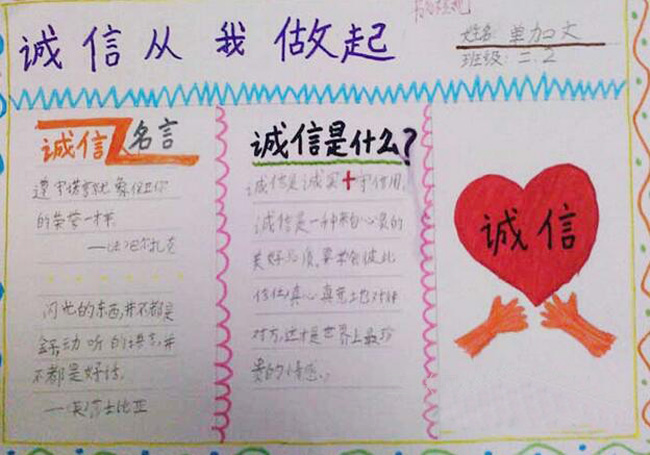 诚信从我做起
姓名: 单加文
班级: 二.2
诚信名言
遵守诺言就象保卫你
的荣誉一样。
——法巴尔扎克
闪光的东西,并不都是
金子,动听的语言,并
不都是好话。
——英莎士比亚
诚信是什么?
诚信是诚实+守信用,
诚信是一种来自心灵的
美好品质,要学会彼此
信任,真心真意地对待
对方,这才是世界上最珍
贵的情感。
诚信